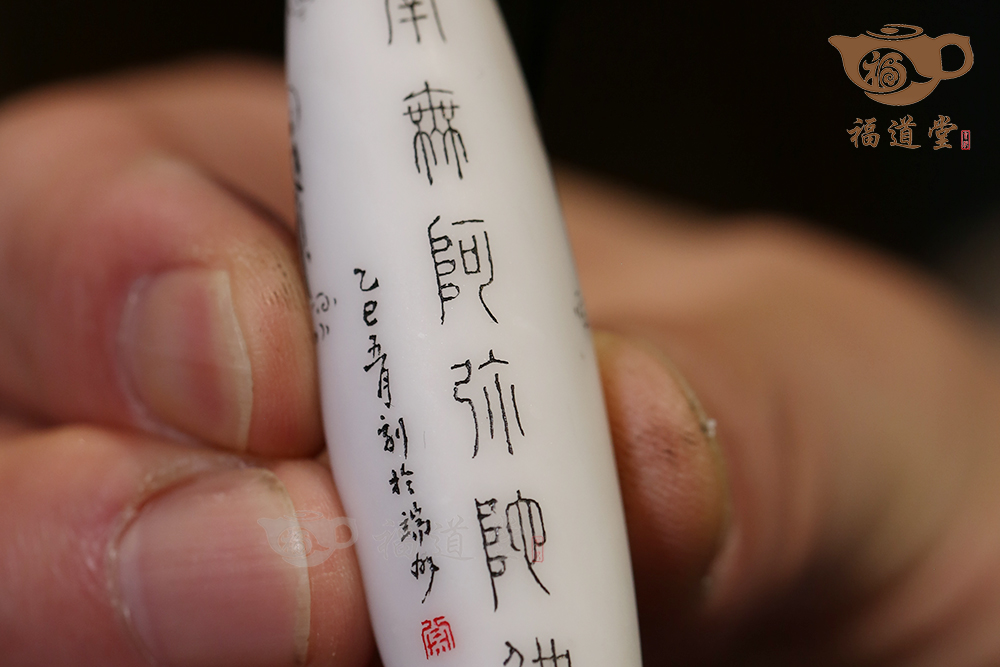 南無阿弥陀佛
乙巳五月刻於端州
福道堂
福道